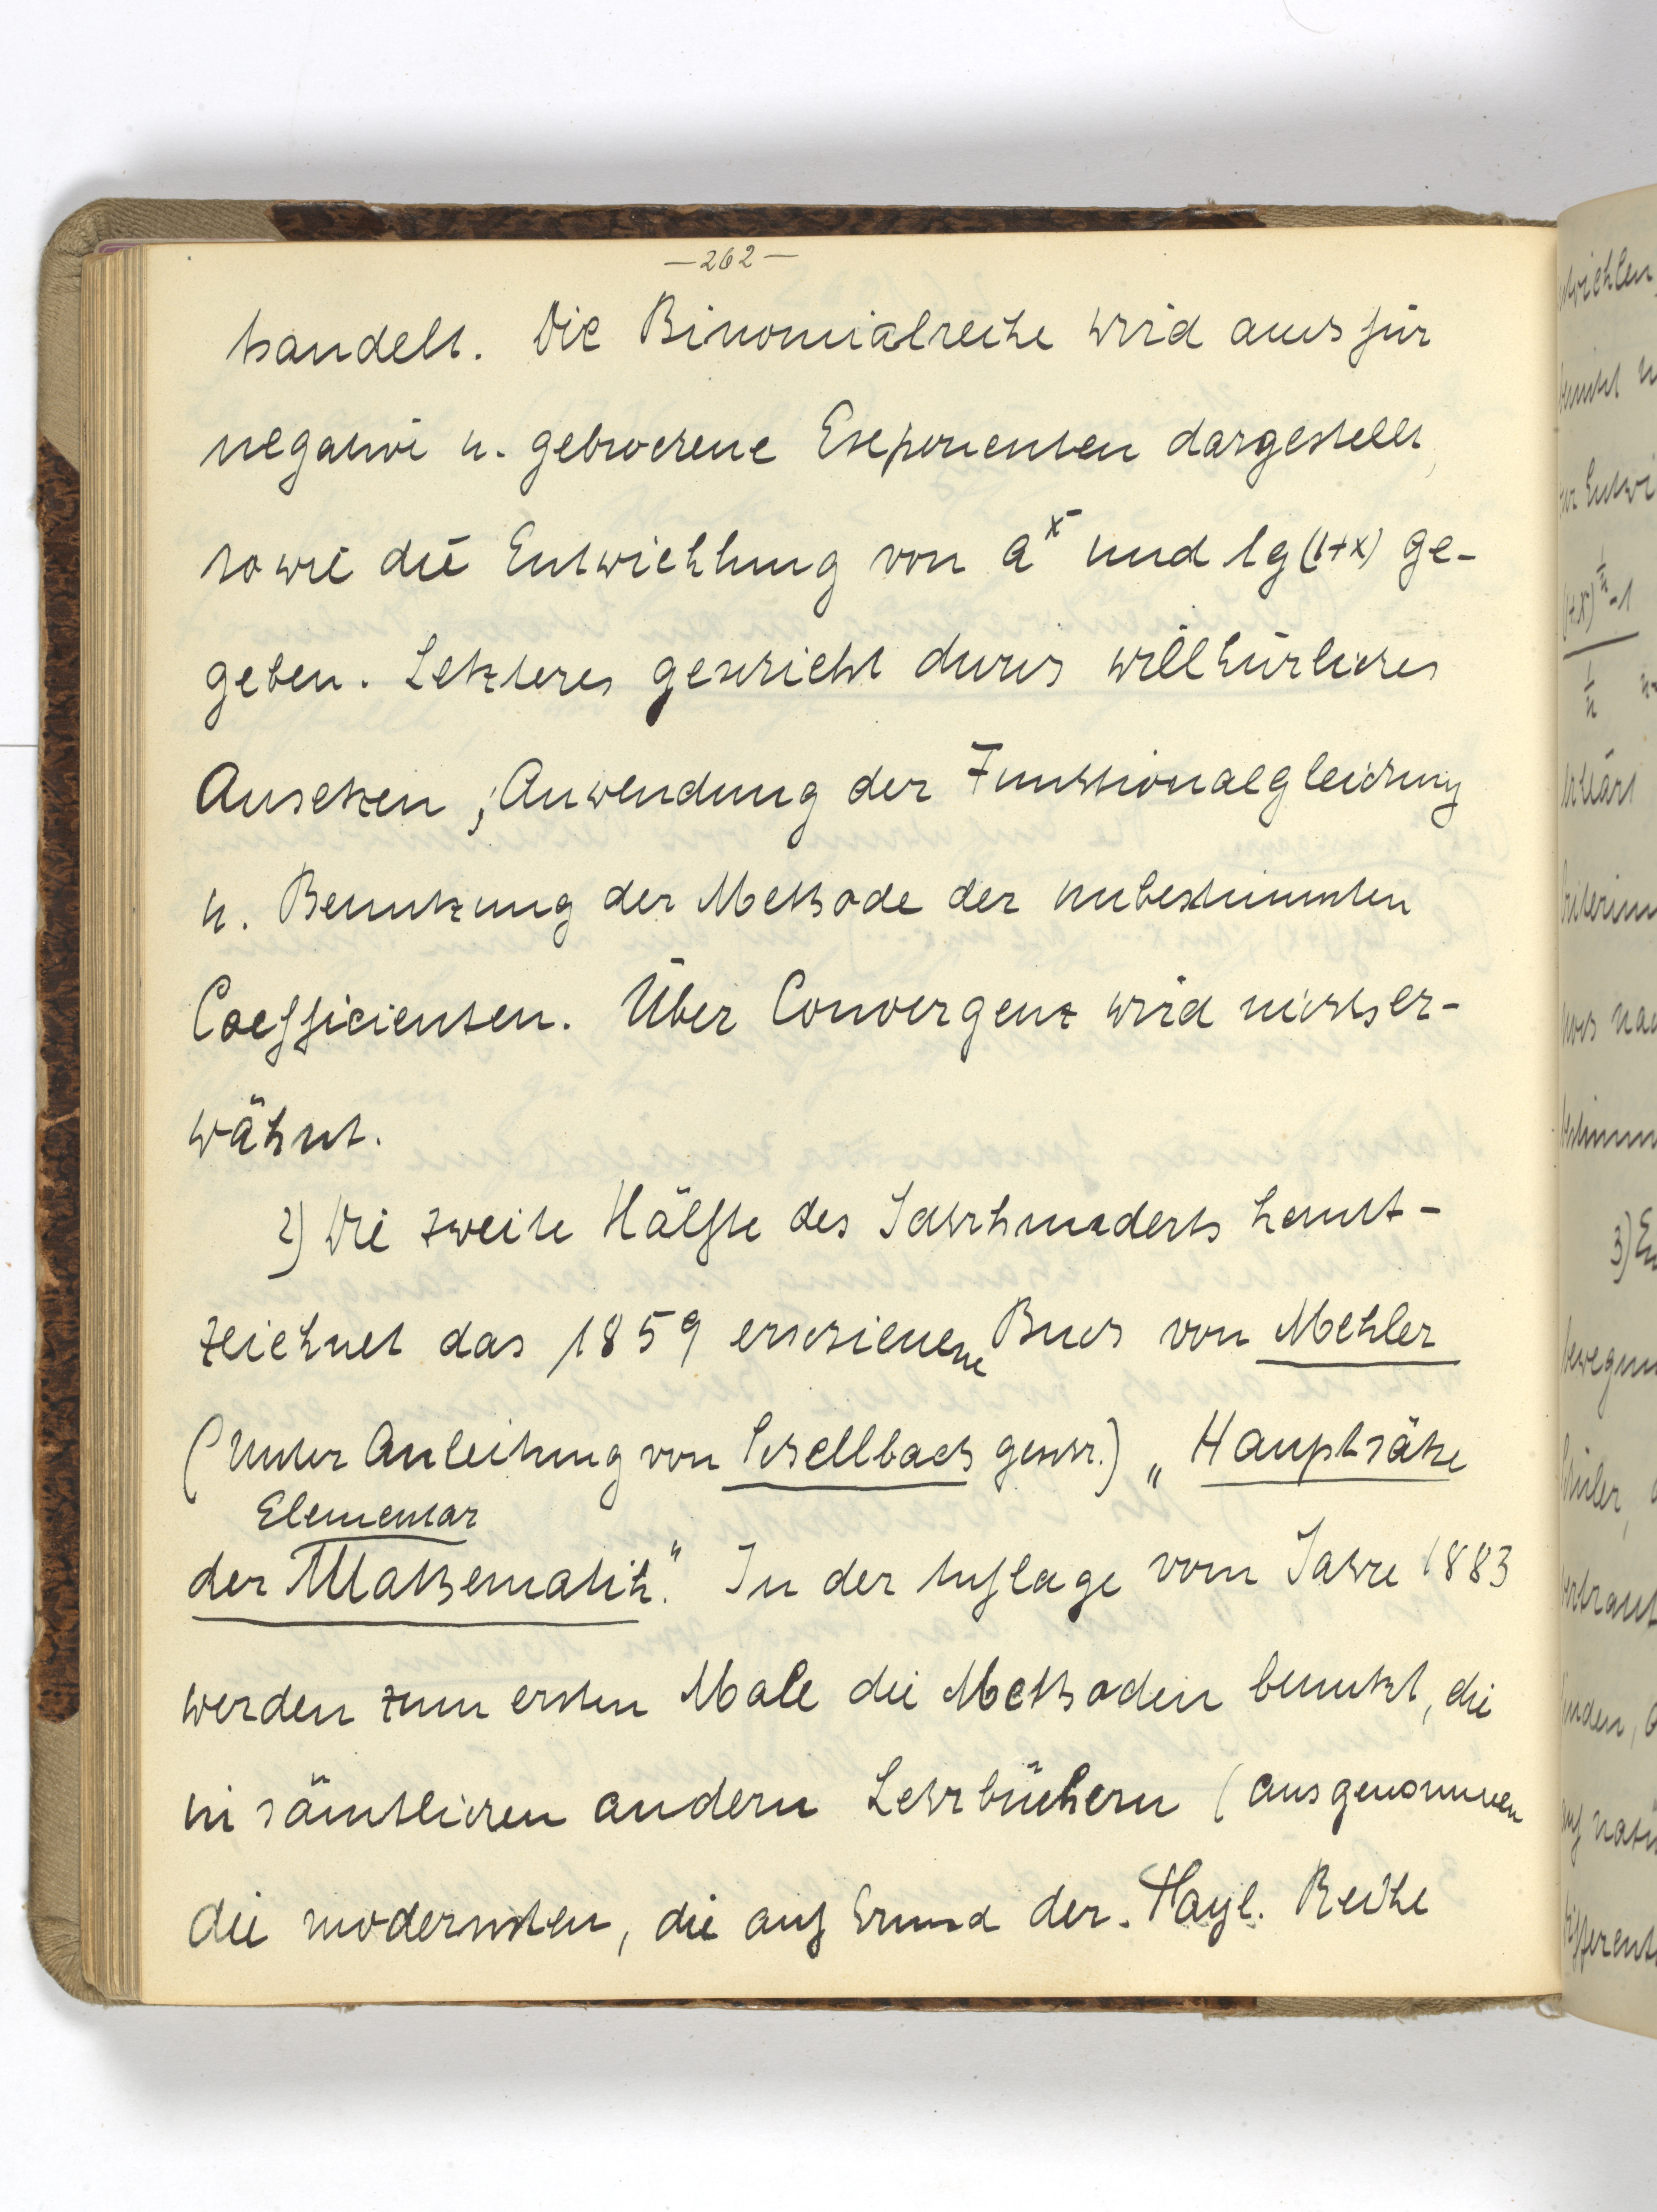 —262—
handelt. Die Binomialreihe wird auch für
negative u. gebrochene Exponenten dargestellt,
sowie die Entwicklung von a^x und lg(1+x) ge-
geben. Letzteres geschieht durch willkürliches
Ansetzen, Anwendung der Funktionalgleichung
u. Benutzung der Methode der unbestimmten
Coefficienten. Über Convergenz wird nichts er-
wähnt.
2) Die zweite Hälfte des Jahrhunderts kennt-
zeichnet das 1859 erschienene Buch von Mehler
(Unter Anleitung von Schellbach geschr.) „Hauptsätze
Elementar
der Mathematik." In der Auflage vom Jahre 1883
werden zum ersten Male die Methoden benutzt, die
in sämtlichen andern Lehrbüchern (ausgenommen
die modernsten, die auf Grund der Tayl. Reihe
(1+x)^1/n - 1
1/n
erklärt
3)